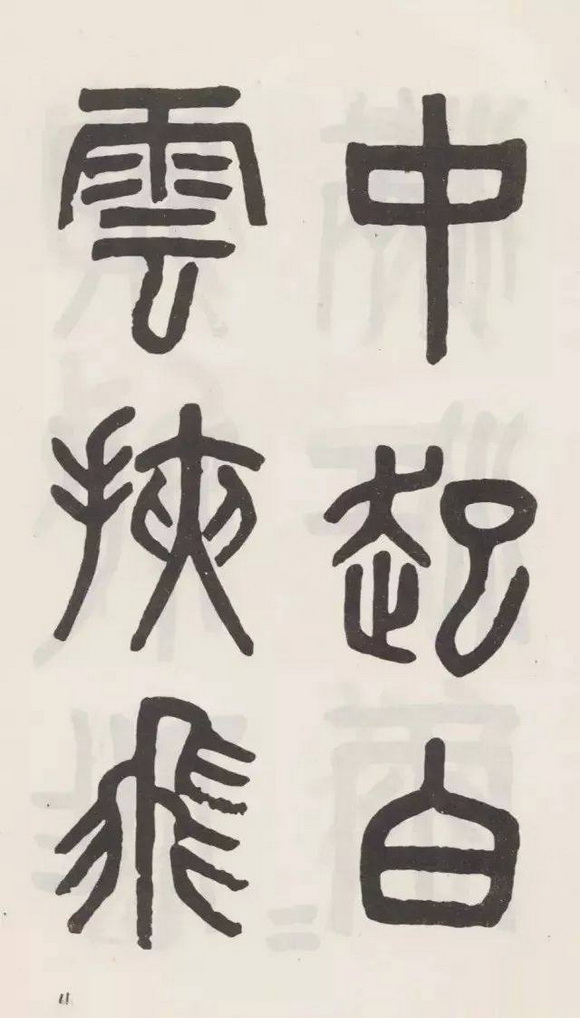 中起白
雲挾飛